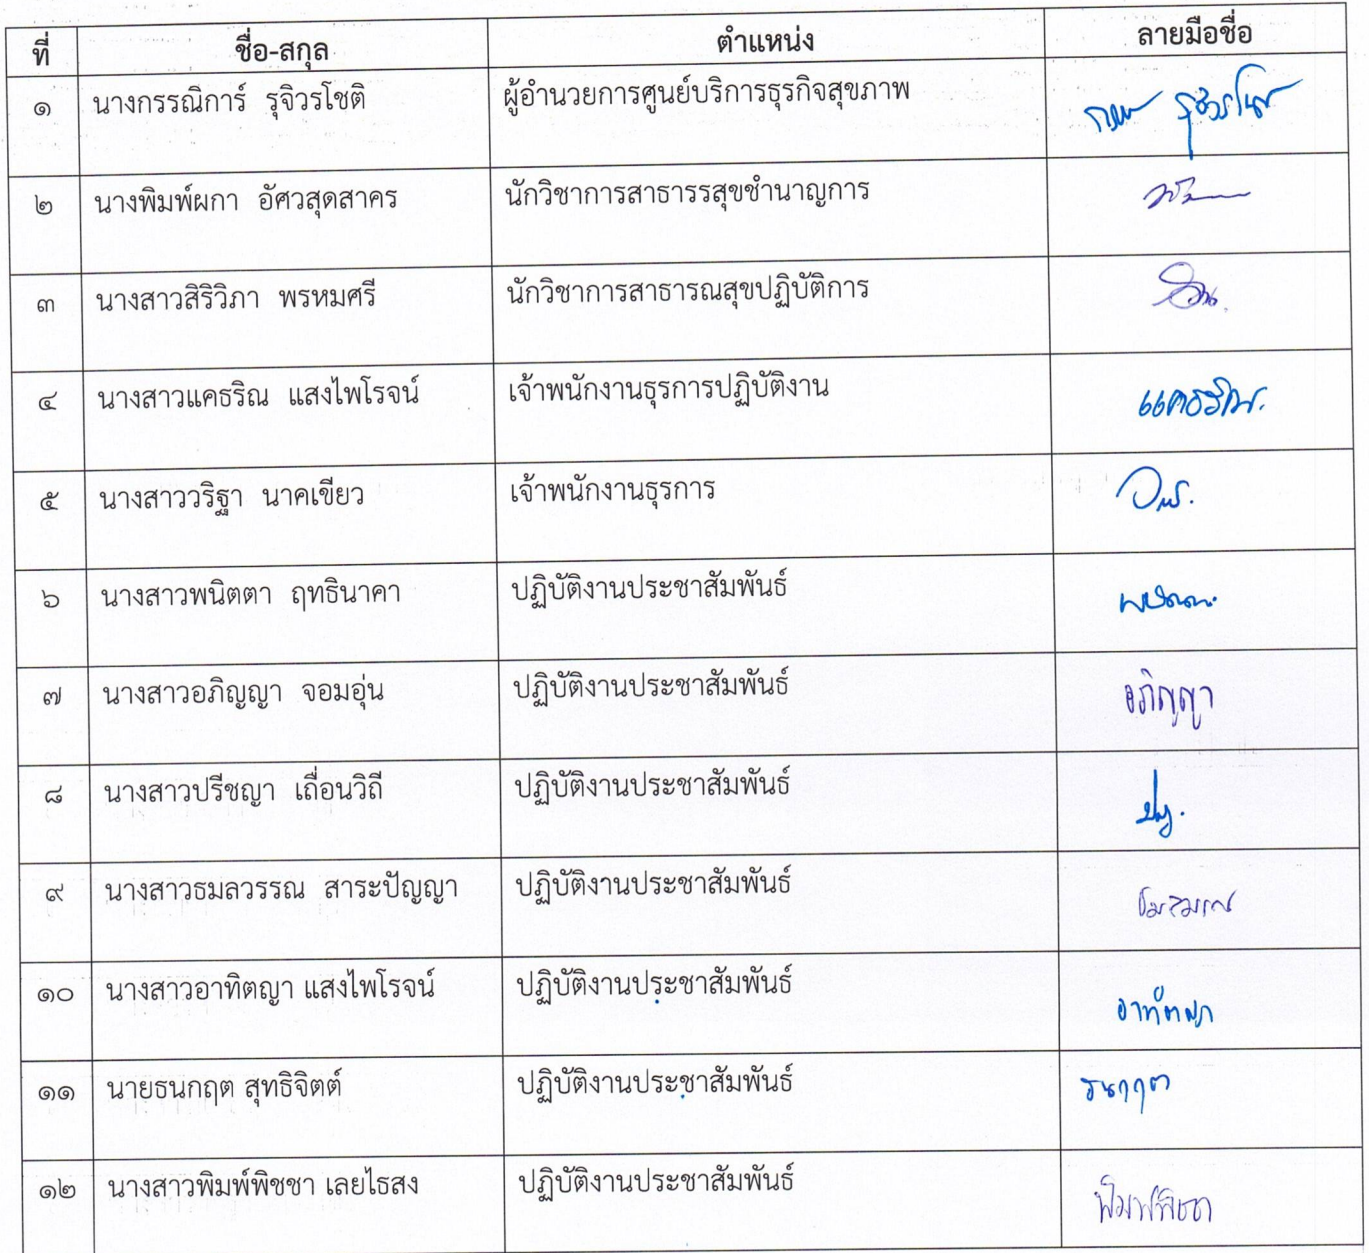 ที่ ชื่อ-สกุล ตำแหน่ง ลายมือชื่อ
๑ นางกรรณิการ์ รุจิวรโชติ ผู้อำนวยการศูนย์บริการธุรกิจสุขภาพ
๒ นางพิมพ์ผกา อัศวสุดสาคร นักวิชาการสาธารรสุขชำนาญการ
๓ นางสาวสิริวิภา พรหมศรี นักวิชาการสาธารณสุขปฏิบัติการ
๔ นางสาวแคธริณ แสงไพโรจน์ เจ้าพนักงานธุรการปฏิบัติงาน แคธริณ.
๕ นางสาววริฐา นาคเขียว เจ้าพนักงานธุรการ
๖ นางสาวพนิตตา ฤทธินาคา ปฏิบัติงานประชาสัมพันธ์
๗ นางสาวอภิญญา จอมอุ่น ปฏิบัติงานประชาสัมพันธ์ อภิญญา
๘ นางสาวปรีชญา เถื่อนวิถี ปฏิบัติงานประชาสัมพันธ์
๙ นางสาวธมลวรรณ สาระปัญญา ปฏิบัติงานประชาสัมพันธ์
๑๐ นางสาวอาทิตญา แสงไพโรจน์ ปฏิบัติงานประชาสัมพันธ์ อาทิตญา
๑๑ นายธนกฤต สุทธิจิตต์ ปฏิบัติงานประชาสัมพันธ์ ธนกฤต
๑๒ นางสาวพิมพ์พิชชา เลยไธสง ปฏิบัติงานประชาสัมพันธ์ พิมพ์พิชชา